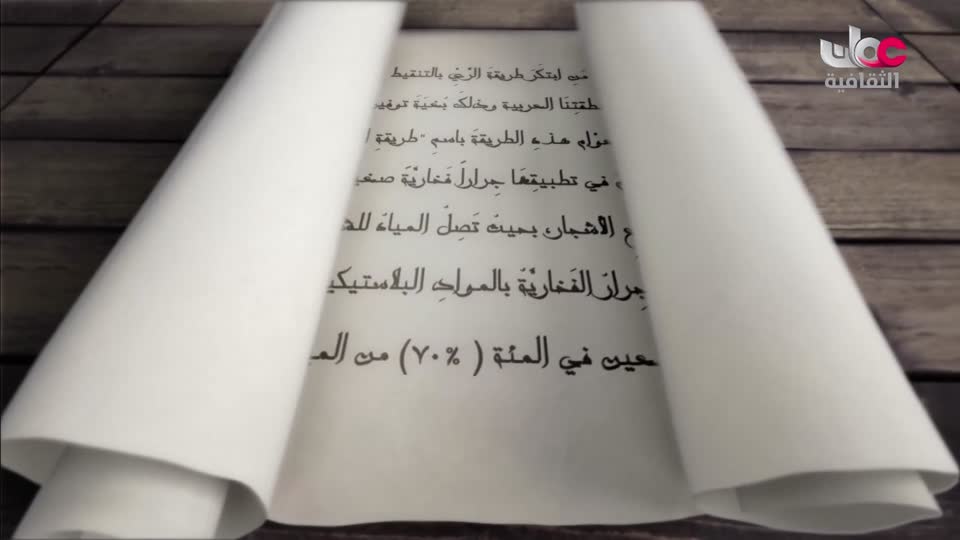 عمان
الثقافية
مَنِ ابتَكَرَ طريقةَ الرَّيِّ بالتنقيط
العربية وذلكَ بُغيَةَ
هذهِ الطريقةَ باسمِ "طريقةِ
في تطبيقِهَا جِراراً فَخاريَّةً
الأشجار، بحيثُ تَصِلُ المياهُ
جِرارُ الفَخاريَّةُ بالموادِ البلاستيكي
في المئة ( ٧٠% ) من